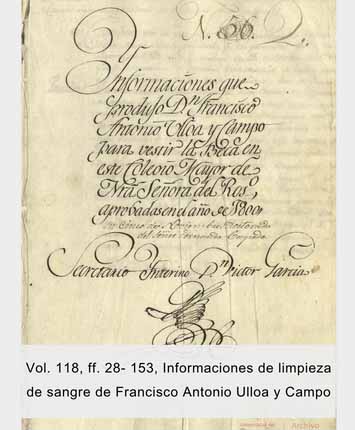 N. 56. 2.
Ynformaciones que
produjo D.n Francisco
Antonio Ulloa y Campo
para vestir la Beca en
este Colegio Mayor de
Ntrã Señora del Ros.o
aprobadas en el año de 1800
Secretario Ynterino D.n Victor Garcia
Vol. 118, ff. 28- 153, Informaciones de limpieza
de sangre de Francisco Antonio Ulloa y Campo
Archivo